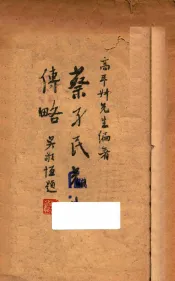 高平叔先生編著
蔡孑民先
傳略
吳敬恆題